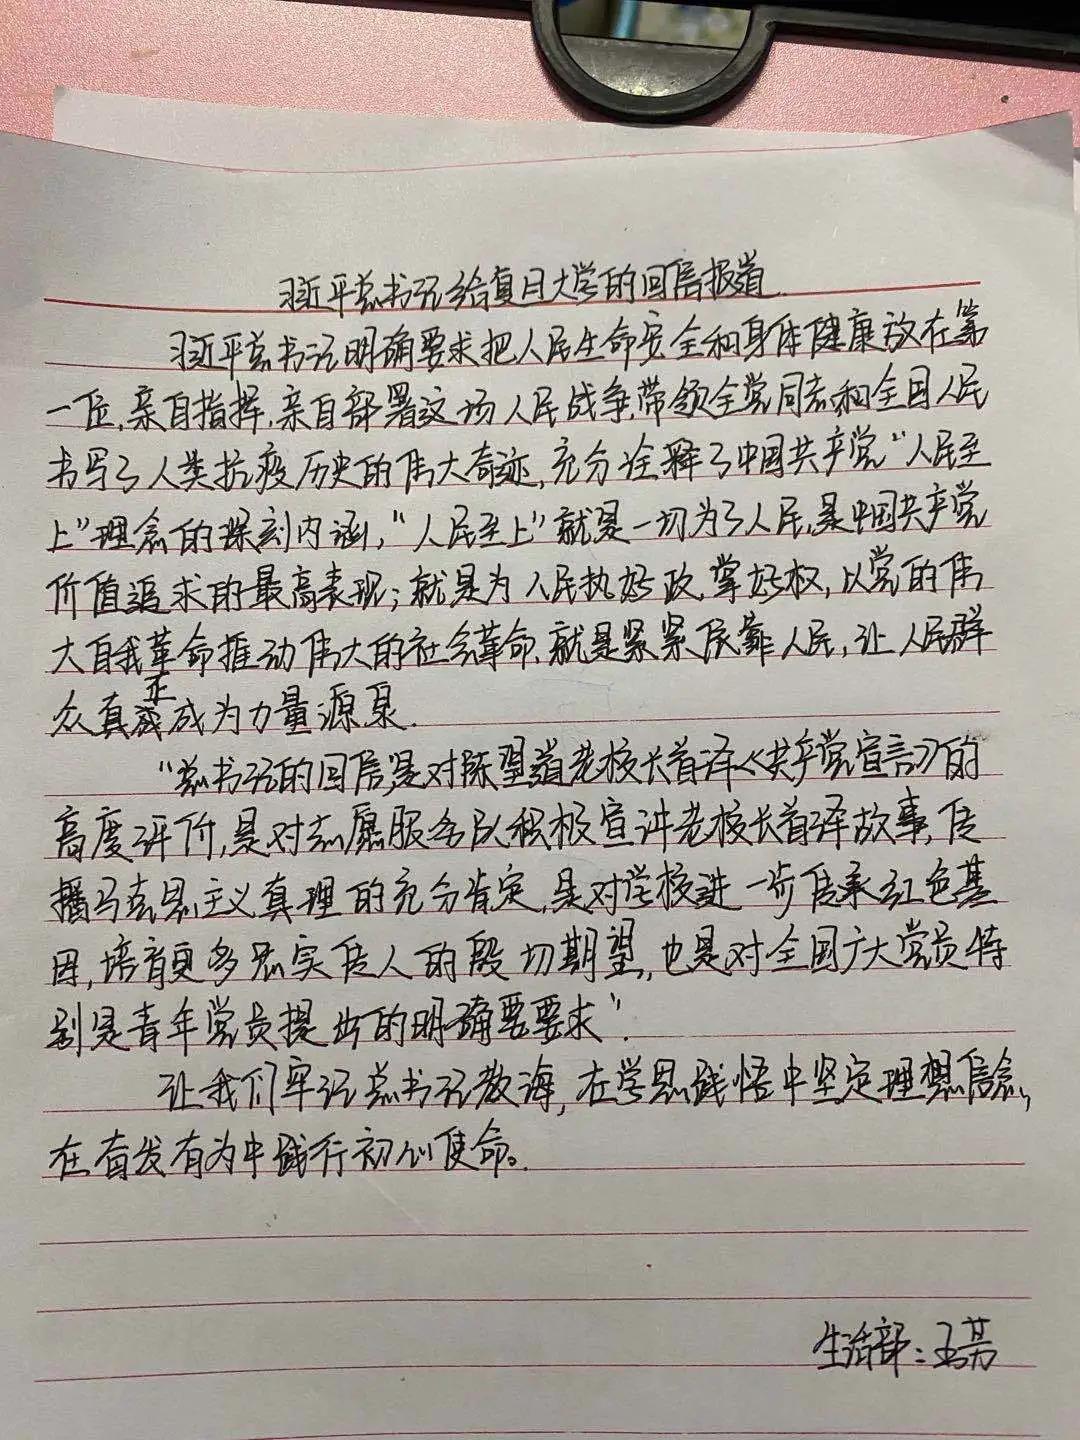 习近平总书记给复旦大学的回信报道.
习近平总书记明确要求把人民生命安全和身体健康放在第
一位,亲自指挥.亲自部署这场人民战争,带领全党同志和全国人民
书写了人类抗疫历史的伟大奇迹,充分诠释了中国共产党“人民至
上”理念的深刻内涵,“人民至上”就是一切为了人民,是中国共产党
价值追求的最高表现;就是为人民执好政,掌好权,以党的伟
大自我革命推动伟大的社会革命,就是紧紧依靠人民,让人民群
众真正成为力量源泉.
“总书记的回信,是对陈望道老校长首译《共产党宣言》的
高度评价,是对志愿服务队积极宣讲老校长首译故事,传
播马克思主义真理的充分肯定,是对学校进一步传承红色基
因,培育更多忠实传人的殷切期望,也是对全国广大党员特
别是青年党员提出的明确要要求”.
让我们牢记总书记教诲,在学思践悟中坚定理想信念,
在奋发有为中践行初心使命。
生活部:王芳